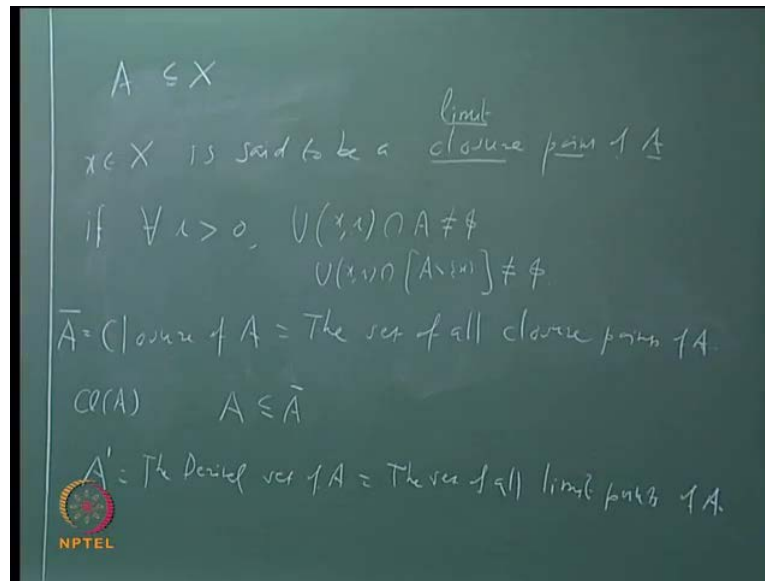 A ⊆ X
limit
x ∈ X is said to be a closure point of A
if ∀ r > 0, U(x,r) ∩ A ≠ φ
U(x,r) ∩ [A \ {x}] ≠ φ
Ā = Closure of A = The set of all closure points of A.
Cl(A) A ⊆ Ā
A' = The Derived set of A = The set of all limit points of A.
NPTEL